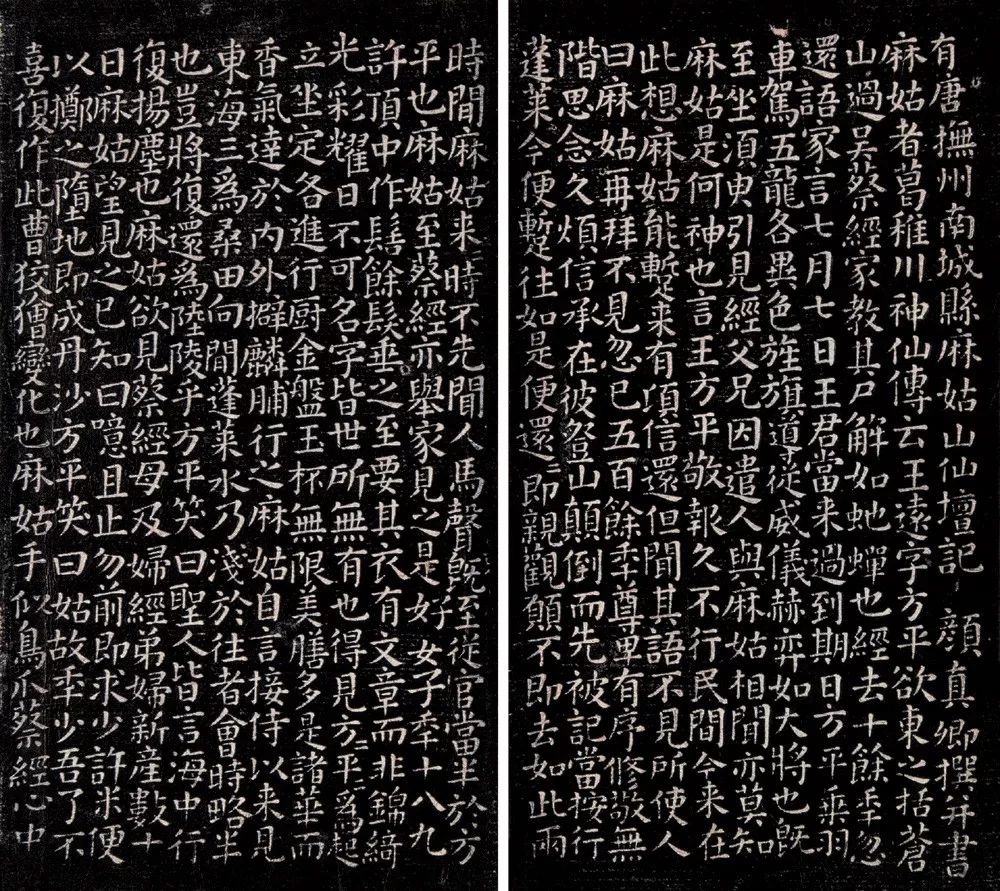 有唐撫州南城縣麻姑山仙壇記 顏真卿撰并書
麻姑者葛稚川神仙傳云王遠字方平欲東之括蒼
山過吴蔡經家教其尸解如虵蟬也經去十餘年忽
還語家言七月七日王君當来過到期日方平乗羽
車駕五龍各異色旌旗導從威儀赫弈如大將也既
至坐須臾引見經父兄因遣人與麻姑相聞亦莫知
麻姑是何神也言王方平敬報久不行民間今来在
此想麻姑能暫来有頃信還但聞其語不見所使人
曰麻姑再拜不見忽已五百餘年尊卑有序修敬無
階思念久煩信承在彼登山顛倒而先被記當按行
蓬莱今便暫往如是便還還即親觀願不即去如此兩
時間麻姑来時不先聞人馬聲既至從官當半於方
平也麻姑至蔡經亦舉家見之是好女子年十八九
許頂中作髻餘髮垂之至要其衣有文章而非錦綺
光彩耀日不可名字皆世所無有也得見方平方平為起
立坐定各進行厨金盤玉杯無限美膳多是諸華而
香氣達於内外擗麟脯行之麻姑自言接侍以来見
東海三爲桑田向間蓬莱水乃淺於往者會時略半
也豈將復還爲陸陵乎方平笑曰聖人皆言海中行
復揚塵也麻姑欲見蔡經母及婦經弟婦新産數十
日麻姑望見之已知曰噫且止勿前即求少許米便
以擲之墮地即成丹沙方平笑曰姑故年少吾了不
喜復作此曹狡獪變化也麻姑手似鳥爪蔡經心中